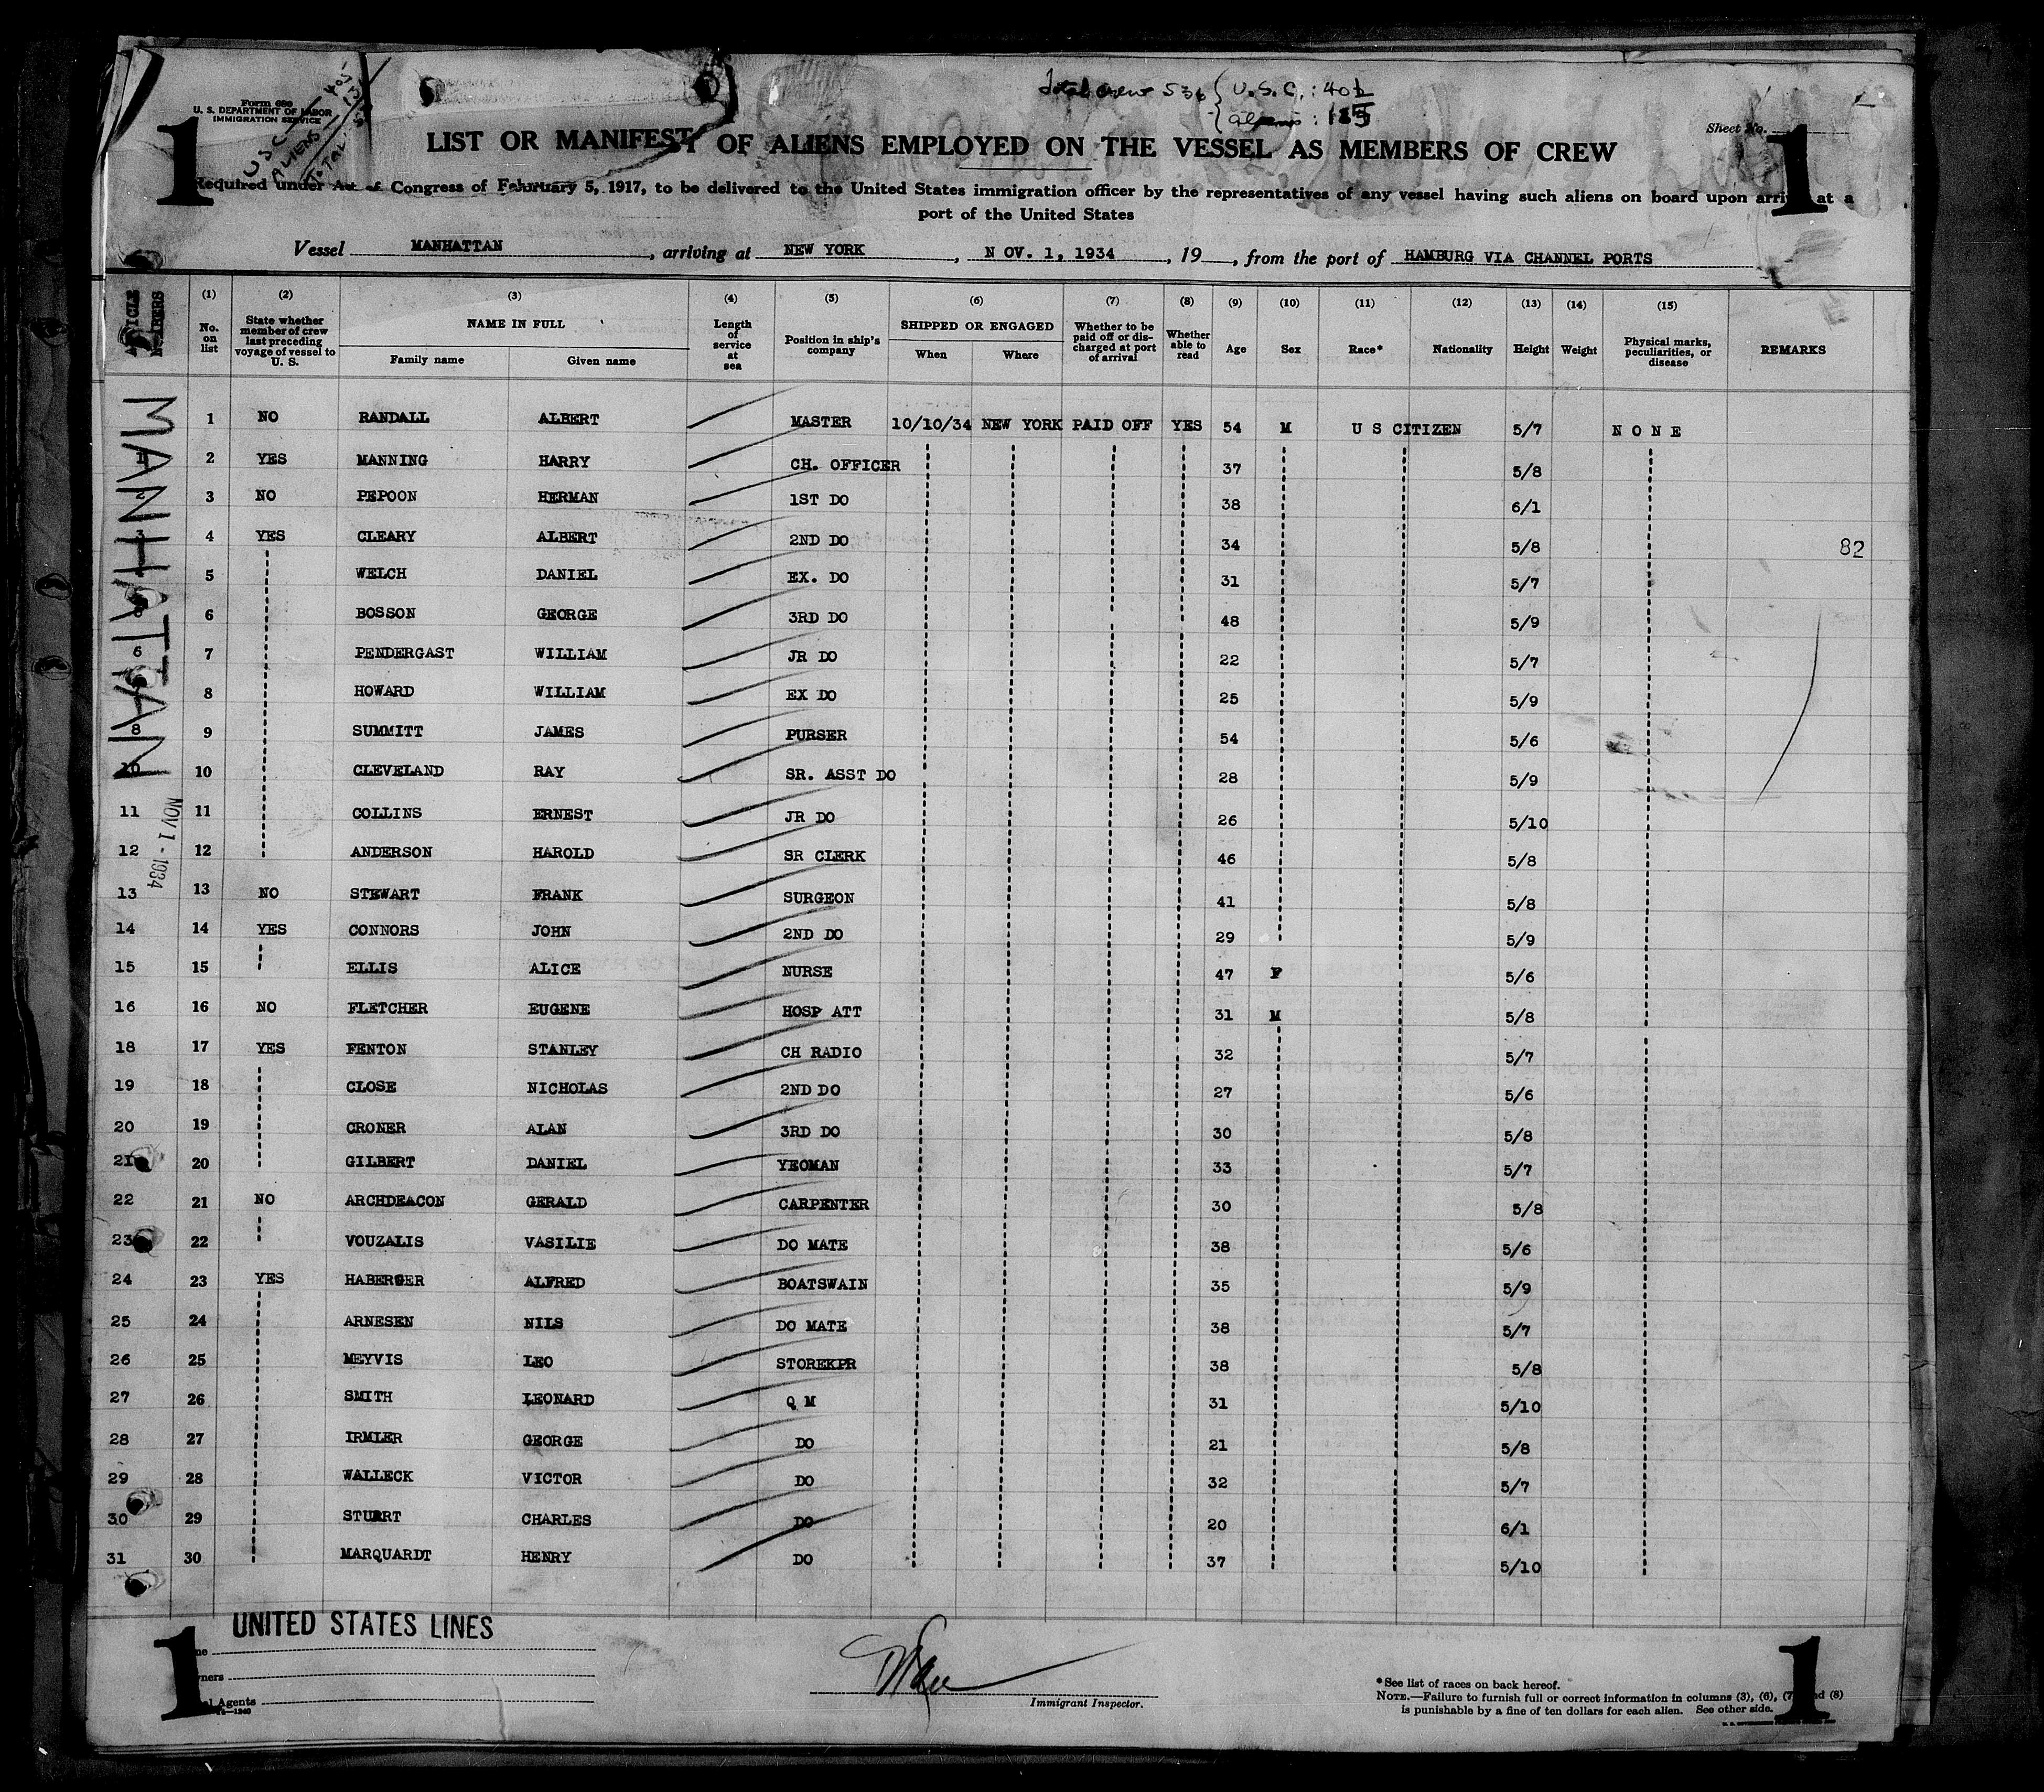 Form 689
U. S. DEPARTMENT OF LABOR
IMMIGRATION SERVICE
U S C
ALIENS
TOTAL
Total crew 536 { U. S. C. :
aliens :
1 1
Sheet No.
LIST OR MANIFEST OF ALIENS EMPLOYED ON THE VESSEL AS MEMBERS OF CREW
Required under Act of Congress of February 5, 1917, to be delivered to the United States immigration officer by the representatives of any vessel having such aliens on board upon arrival at a
port of the United States
Vessel MANHATTAN, arriving at NEW YORK, N OV. 1, 1934, 19, from the port of HAMBURG VIA CHANNEL PORTS
ARTICLE NUMBERS (1) No. on list (2) State whether member of crew last preceding voyage of vessel to U. S. (3) NAME IN FULL Family name Given name (4) Length of service at sea (5) Position in ship's company (6) SHIPPED OR ENGAGED When Where (7) Whether to be paid off or discharged at port of arrival (8) Whether able to read (9) Age (10) Sex (11) Race* (12) Nationality (13) Height (14) Weight (15) Physical marks, peculiarities, or disease REMARKS
MANHATTAN
NOV 1 - 1934
1 NO RANDALL ALBERT MASTER 10/10/34 NEW YORK PAID OFF YES 54 M U S CITIZEN 5/7 N O N E
1 2 YES MANNING HARRY CH. OFFICER 37 5/8
2 3 NO PEPOON HERMAN 1ST DO 38 6/1
4 YES CLEARY ALBERT 2ND DO 34 5/8 82
5 WELCH DANIEL EX. DO 31 5/7
6 BOSSON GEORGE 3RD DO 48 5/9
6 7 PENDERGAST WILLIAM JR DO 22 5/7
8 HOWARD WILLIAM EX DO 25 5/9
8 9 SUMMITT JAMES PURSER 54 5/6
10 10 CLEVELAND RAY SR. ASST DO 28 5/9
11 11 COLLINS ERNEST JR DO 26 5/10
12 12 ANDERSON HAROLD SR CLERK 46 5/8
13 13 NO STEWART FRANK SURGEON 41 5/8
14 14 YES CONNORS JOHN 2ND DO 29 5/9
15 15 ELLIS ALICE NURSE 47 F 5/6
16 16 NO FLETCHER EUGENE HOSP ATT 31 M 5/8
18 17 YES FENTON STANLEY CH RADIO 32 5/7
19 18 CLOSE NICHOLAS 2ND DO 27 5/6
20 19 CRONER ALAN 3RD DO 30 5/8
21 20 GILBERT DANIEL YEOMAN 33 5/7
22 21 NO ARCHDEACON GERALD CARPENTER 30 5/8
23 22 VOUZALIS VASILIE DO MATE 38 5/6
24 23 YES HABERGER ALFRED BOATSWAIN 35 5/9
25 24 ARNESEN NILS DO MATE 38 5/7
26 25 MEYVIS LEO STOREKPR 38 5/8
27 26 SMITH LEONARD Q M 31 5/10
28 27 IRMLER GEORGE DO 21 5/8
29 28 WALLECK VICTOR DO 32 5/7
30 29 STUART CHARLES DO 20 6/1
31 30 MARQUARDT HENRY DO 37 5/10
UNITED STATES LINES
1 1
Immigrant Inspector.
*See list of races on back hereof.
NOTE.—Failure to furnish full or correct information in columns (3), (6), (7) and (8)
is punishable by a fine of ten dollars for each alien. See other side.